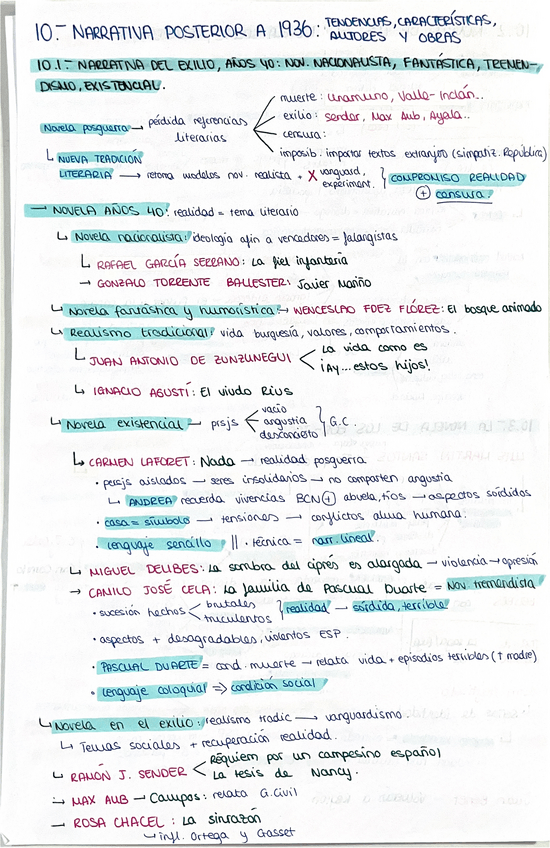 10.- NARRATIVA POSTERIOR A 1936: TENDENCIAS, CARACTERÍSTICAS,
AUTORES Y OBRAS
10.1.- NARRATIVA DEL EXILIO, AÑOS 40: NOV. NACIONALISTA, FANTÁSTICA, TREMEN-
DISMO, EXISTENCIAL.
Novela posguerra → pérdida referencias literarias
muerte: Unamuno, Valle-Inclán..
exilio: Sender, Max Aub, Ayala..
censura:
imposib. importar textos extranjro (simpatiz. República)
↳ NUEVA TRADICIÓN
LITERARIA → retoma modelos nov. realista + X vanguard, experiment. } COMPROMISO REALIDAD
+ censura.
→ NOVELA AÑOS 40: realidad = tema literario
↳ Novela nacionalista: ideología afín a vencedores = falangistas
↳ RAFAEL GARCÍA SERRANO: La fiel infantería
→ GONZALO TORRENTE BALLESTER: Javier Mariño
↳ Novela fantástica y humorística → WENCESLAO FDEZ FLÓREZ: El bosque animado
↳ Realismo tradicional: vida burguesía, valores, comportamientos.
↳ JUAN ANTONIO DE ZUNZUNEGUI < La vida como es
¡Ay...estos hijos!
↳ IGNACIO AGUSTÍ: El viudo Rius
↳ Novela existencial → prsjs < vacío
angustia
desconcierto } G.C.
↳ CARMEN LAFORET: Nada → realidad posguerra
• persjs aislados → seres insolidarios → no comparten angustia
↳ ANDREA recuerda vivencias BCN + abuela, tíos → aspectos sórdidos
• casa = símbolo → tensiones → conflictos alma humana.
• lenguaje sencillo || • técnica = narr. lineal.
↳ MIGUEL DELIBES: La sombra del ciprés es alargada → violencia → opresión
→ CAMILO JOSÉ CELA: La familia de Pascual Duarte = Nov. tremendista
• sucesión hechos < brutales
truculentos } realidad → sórdida, terrible
• aspectos + desagradables, violentos ESP.
• PASCUAL DUARTE = cond. muerte → relata vida + episodios terribles (↑ madre)
• lenguaje coloquial ⇒ condición social
↳ Novela en el exilio: realismo tradic → vanguardismo.
↳ Temas sociales + recuperación realidad.
↳ RAMÓN J. SENDER < Réquiem por un campesino español
La tesis de Nancy.
→ MAX AUB → Campos: relata G.Civil
→ ROSA CHACEL: La sinrazón
↳ infl. Ortega y Gasset